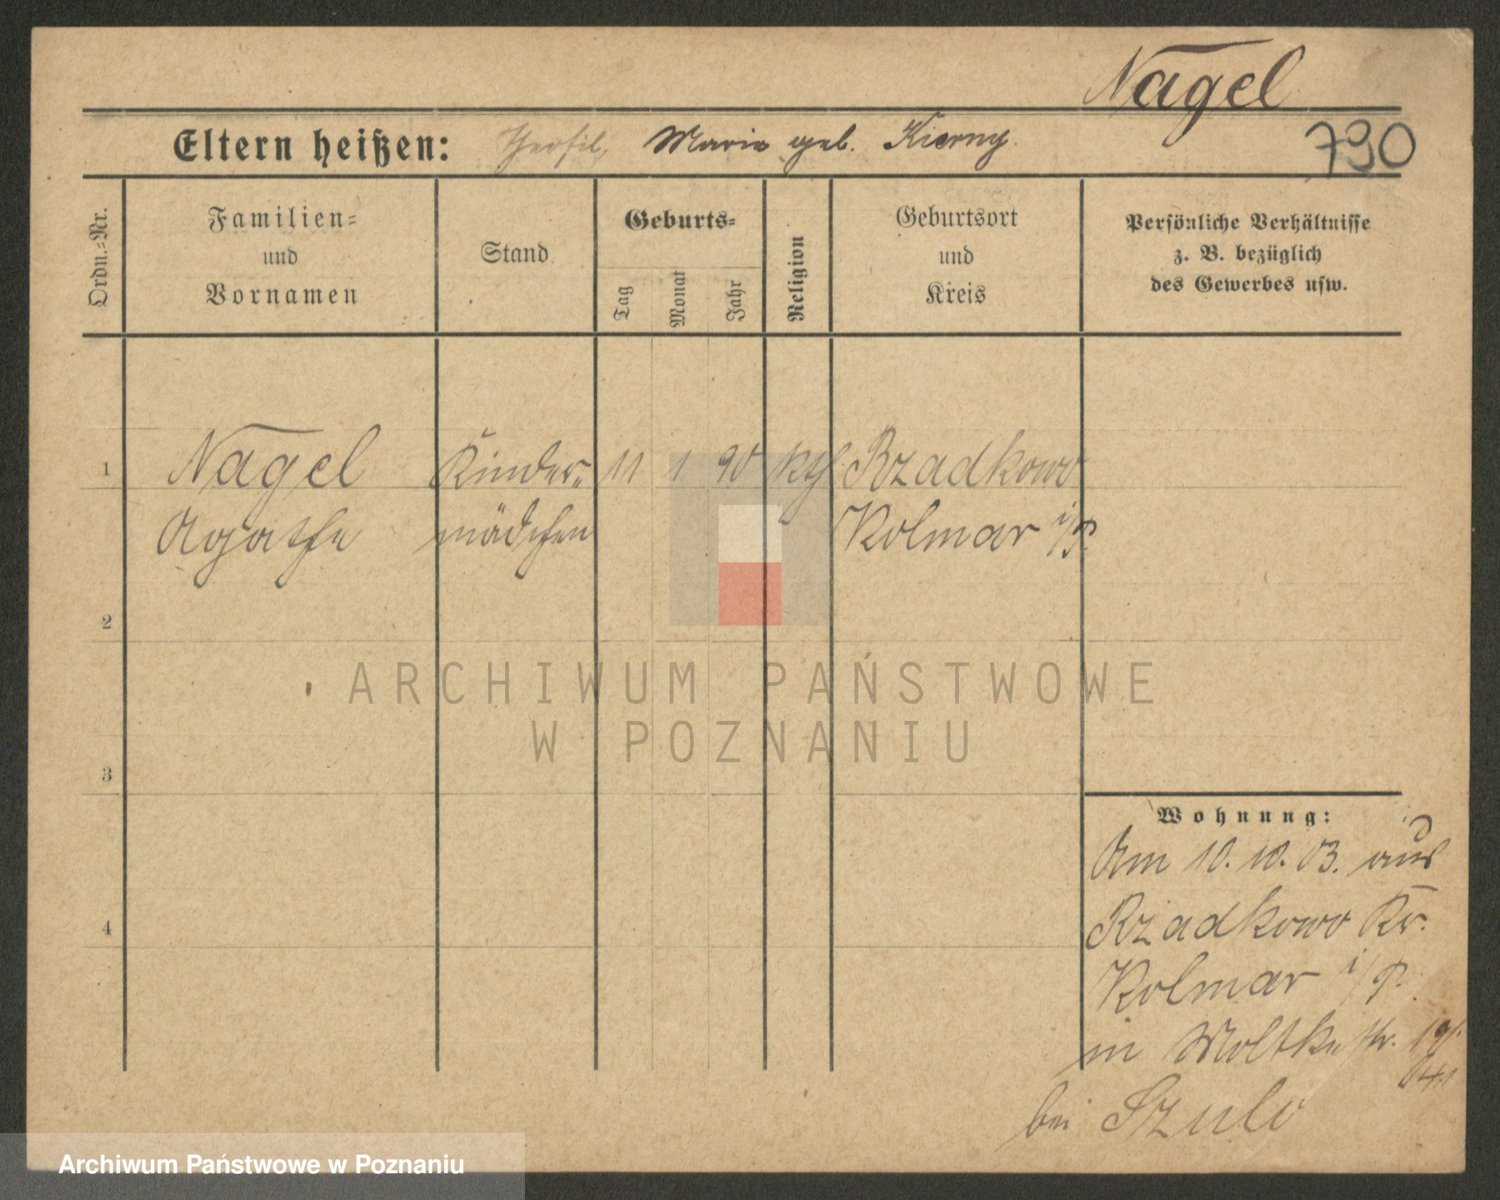 Nagel
790
Eltern heißen: Theofil, Marie geb. Kierny.
Ordn.-Nr.
Familien-
und
Vornamen
Stand
Geburts-
Tag
Monat
Jahr
Religion
Geburtsort
und
Kreis
Persönliche Verhältnisse
z. B. bezüglich
des Gewerbes usw.
1 Nagel Kinder- 11 1 90 kth Rzadkowo
Agathe mädchen Kolmar i/P.
2
3
4
Wohnung:
Am 10. 10. 03. aus
Rzadkowo Kr.
Kolmar i/P.
in Moltkestr.
bei Szulc
ARCHIWUM PAŃSTWOWE
W POZNANIU
Archiwum Państwowe w Poznaniu